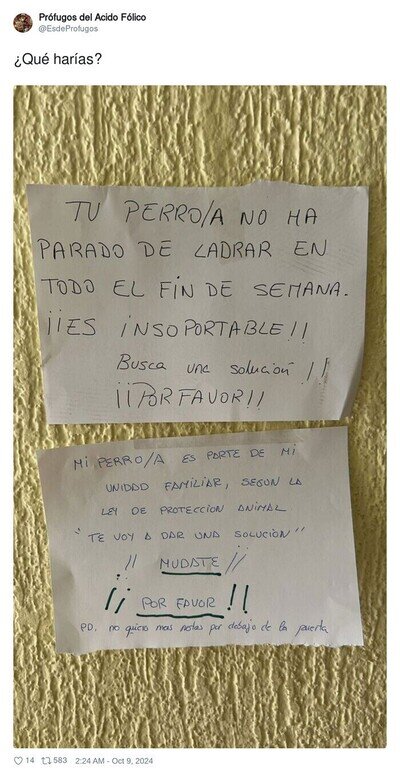 Prófugos del Acido Fólico
@EsdeProfugos
¿Qué harías?
TU PERRO/A NO HA
PARADO DE LADRAR EN
TODO EL FIN DE SEMANA.
¡¡ES INSOPORTABLE!!
Busca una solución!!
¡¡POR FAVOR!!
MI PERRO/A ES PARTE DE MI
UNIDAD FAMILIAR, SEGÚN LA
LEY DE PROTECCION ANIMAL.
"TE VOY A DAR UNA SOLUCIÓN"
¡¡ MUDATE !!
¡¡ POR FAVOR !!
PD. no quiero mas notas por debajo de la puerta
14 583 2:24 AM - Oct 9, 2024